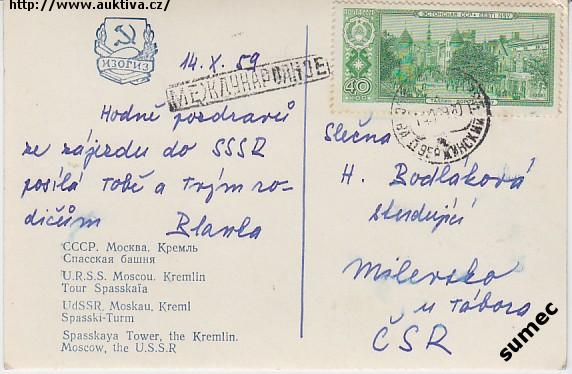 http://www.auktiva.cz/
ИЗОГИЗ
14.X.59
МЕЖДУНАРОДНОЕ
Hodně pozdravů
ze zájezdu do SSSR
posílá Tobě a Tvým ro-
dičům Blanka
СССР. Москва. Кремль
Спасская башня
U.R.S.S. Moscou. Kremlin
Tour Spasskaïa
UdSSR, Moskau, Kreml
Spasski-Turm
Spasskaya Tower, the Kremlin.
Moscow, the U.S.S.R
ЭСТОНСКАЯ ССР • EESTI NSV
40
Slečna
H. Bodláková
studující
Milevsko
u Tábora
ČSR
sumec